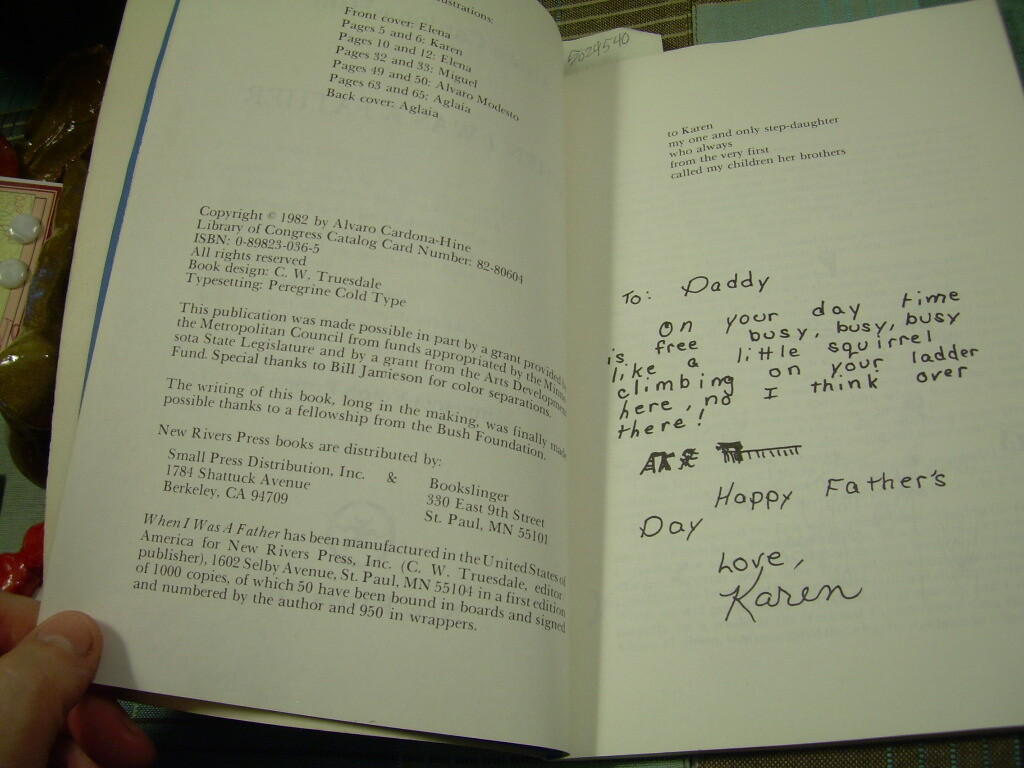 Front cover: Elena
Pages 5 and 6: Karen
Pages 10 and 12: Elena
Pages 32 and 33: Miguel
Pages 49 and 50: Alvaro Modesto
Pages 63 and 65: Aglaia
Back cover: Aglaia
Copyright © 1982 by Alvaro Cardona-Hine
Library of Congress Catalog Card Number: 82-80604
ISBN: 0-89823-036-5
All rights reserved
Book design: C. W. Truesdale
Typesetting: Peregrine Cold Type
This publication was made possible in part by a grant provided
the Metropolitan Council from funds appropriated by the Minne
sota State Legislature and by a grant from the Arts Developmen
Fund. Special thanks to Bill Jamieson for color separations.
The writing of this book, long in the making, was finally made
possible thanks to a fellowship from the Bush Foundation.
New Rivers Press books are distributed by:
Small Press Distribution, Inc. & Bookslinger
1784 Shattuck Avenue 330 East 9th Street
Berkeley, CA 94709 St. Paul, MN 55101
When I Was A Father has been manufactured in the United States of
America for New Rivers Press, Inc. (C. W. Truesdale, editor
publisher), 1602 Selby Avenue, St. Paul, MN 55104 in a first edition
of 1000 copies, of which 50 have been bound in boards and signed
and numbered by the author and 950 in wrappers.
5029540
to Karen
my one and only step-daughter
who always
from the very first
called my children her brothers
To: Daddy
On your day time
is free busy, busy, busy
like a little squirrel
climbing on your ladder
here, no I think over
there!
Happy Father's
Day
Love,
Karen